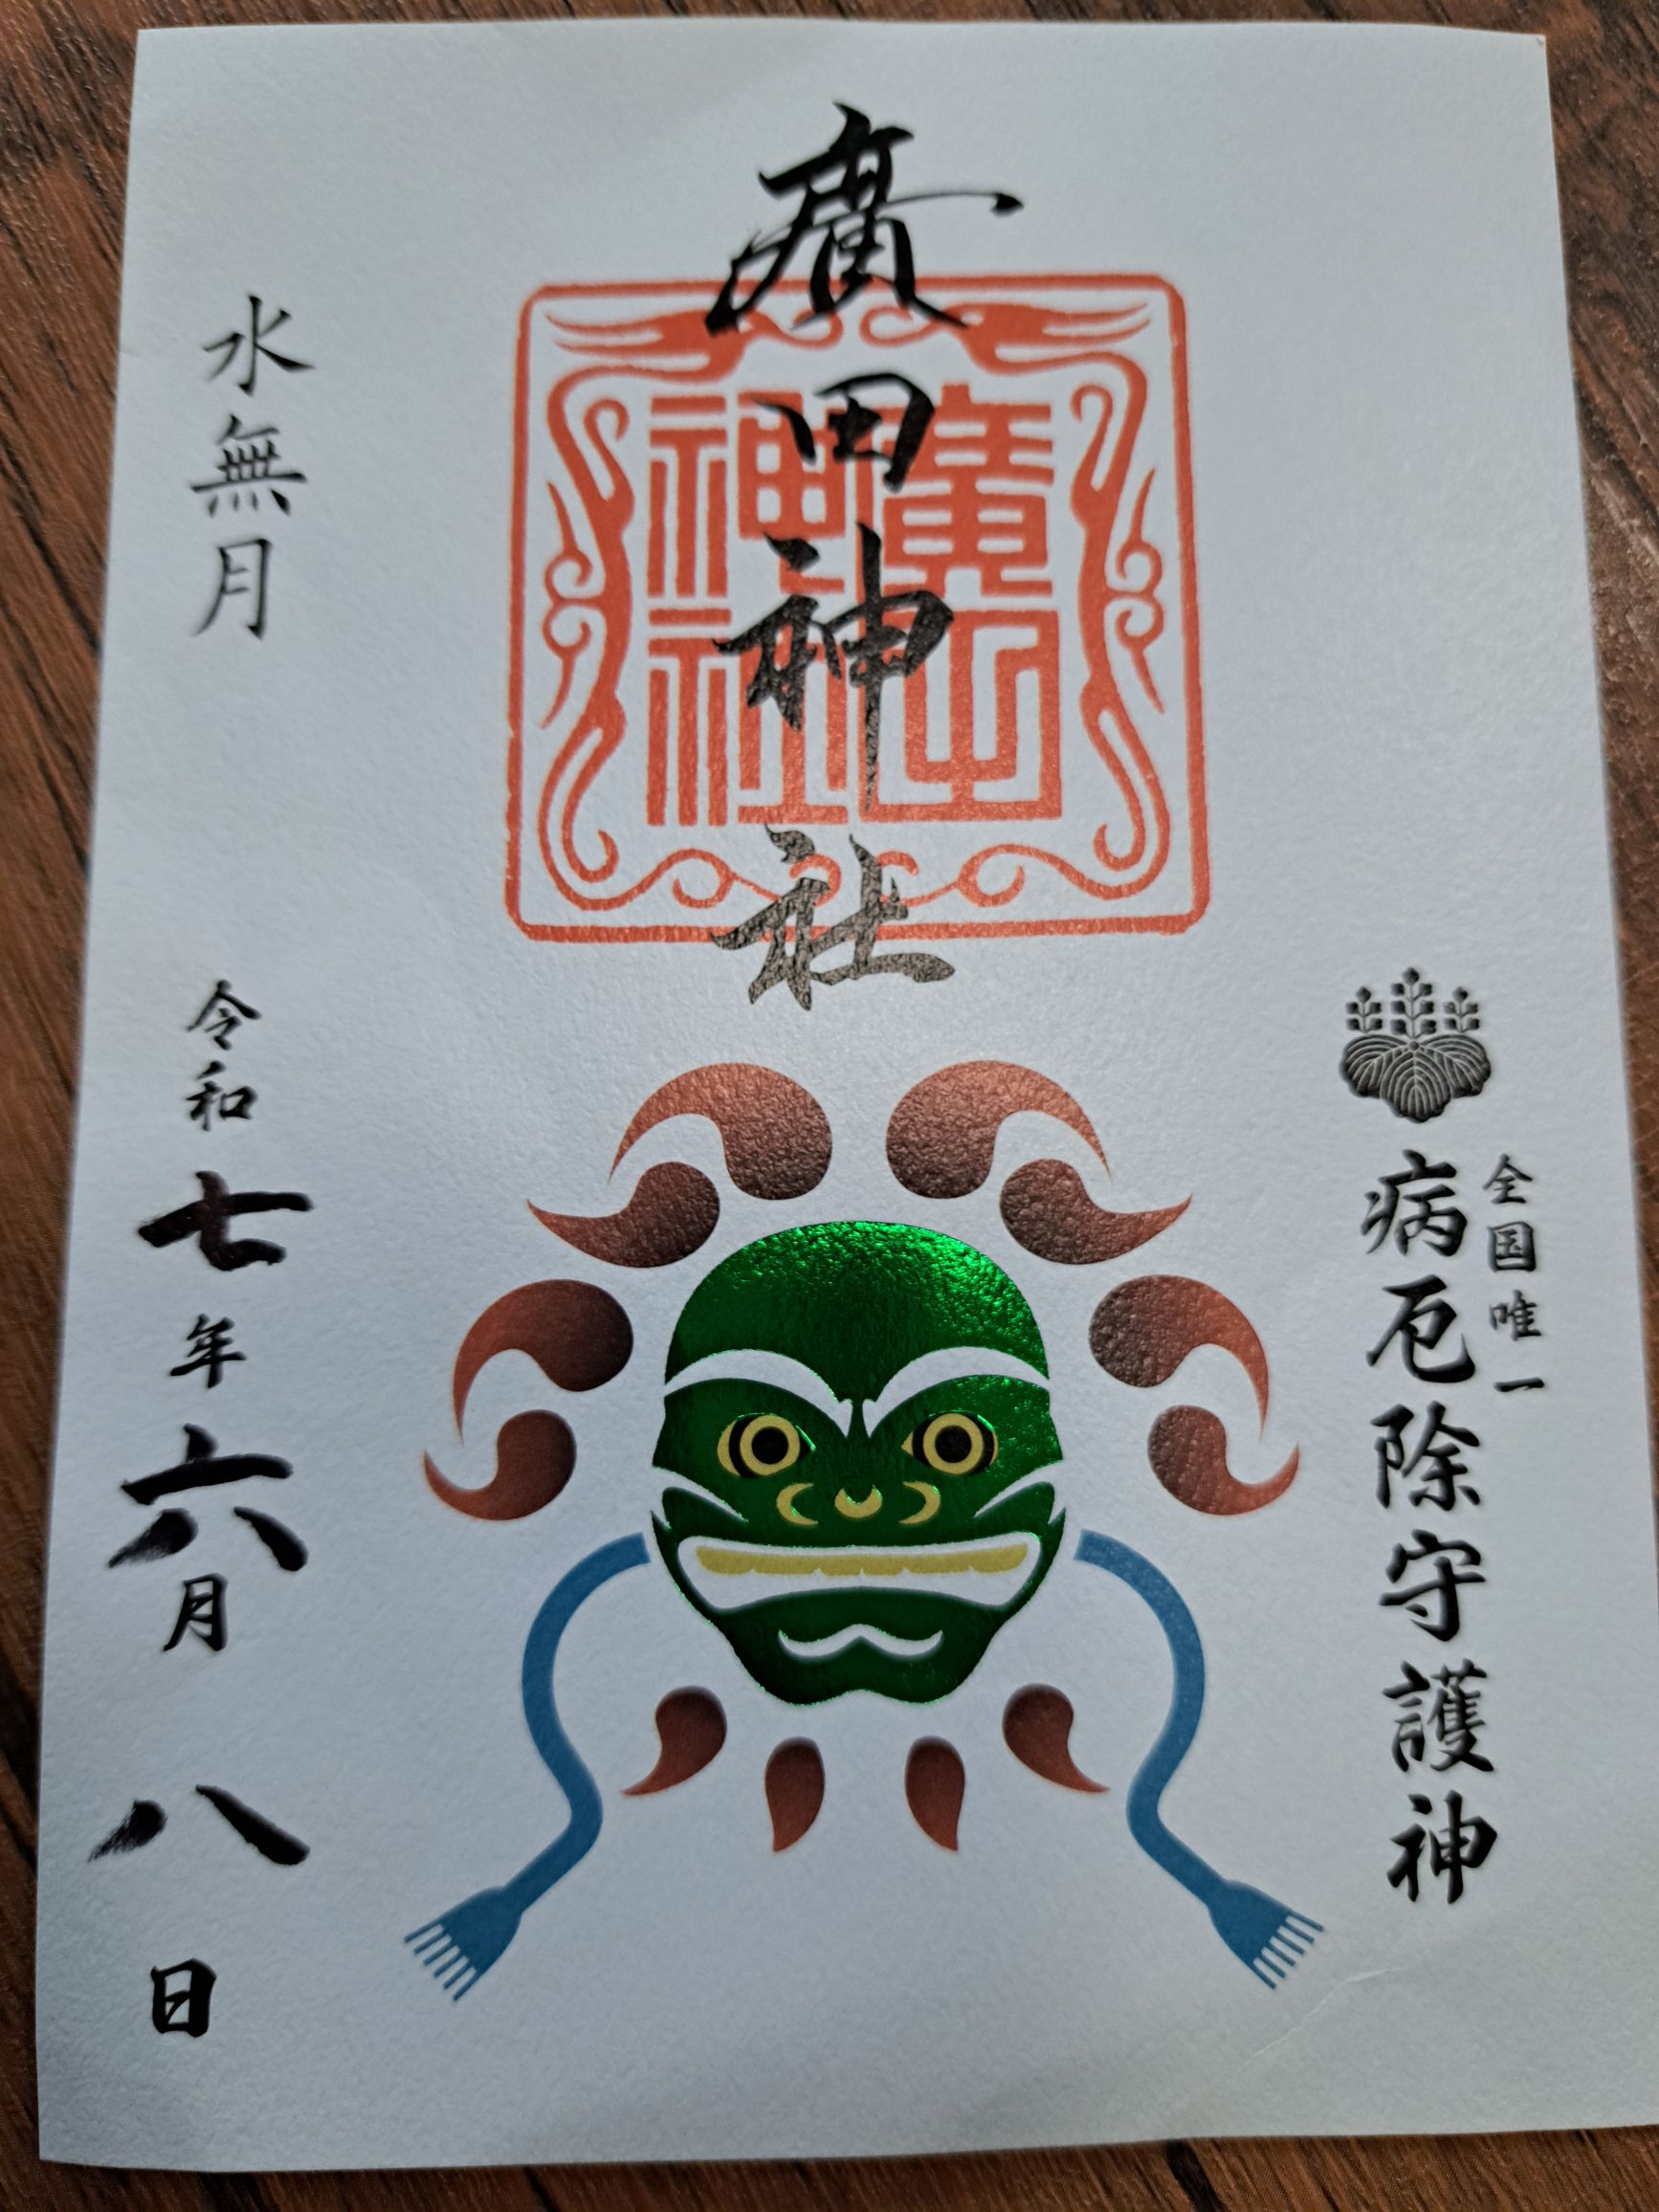 全国唯一
病厄除守護神
廣田神社
廣田神社
水無月
令和七年六月八日